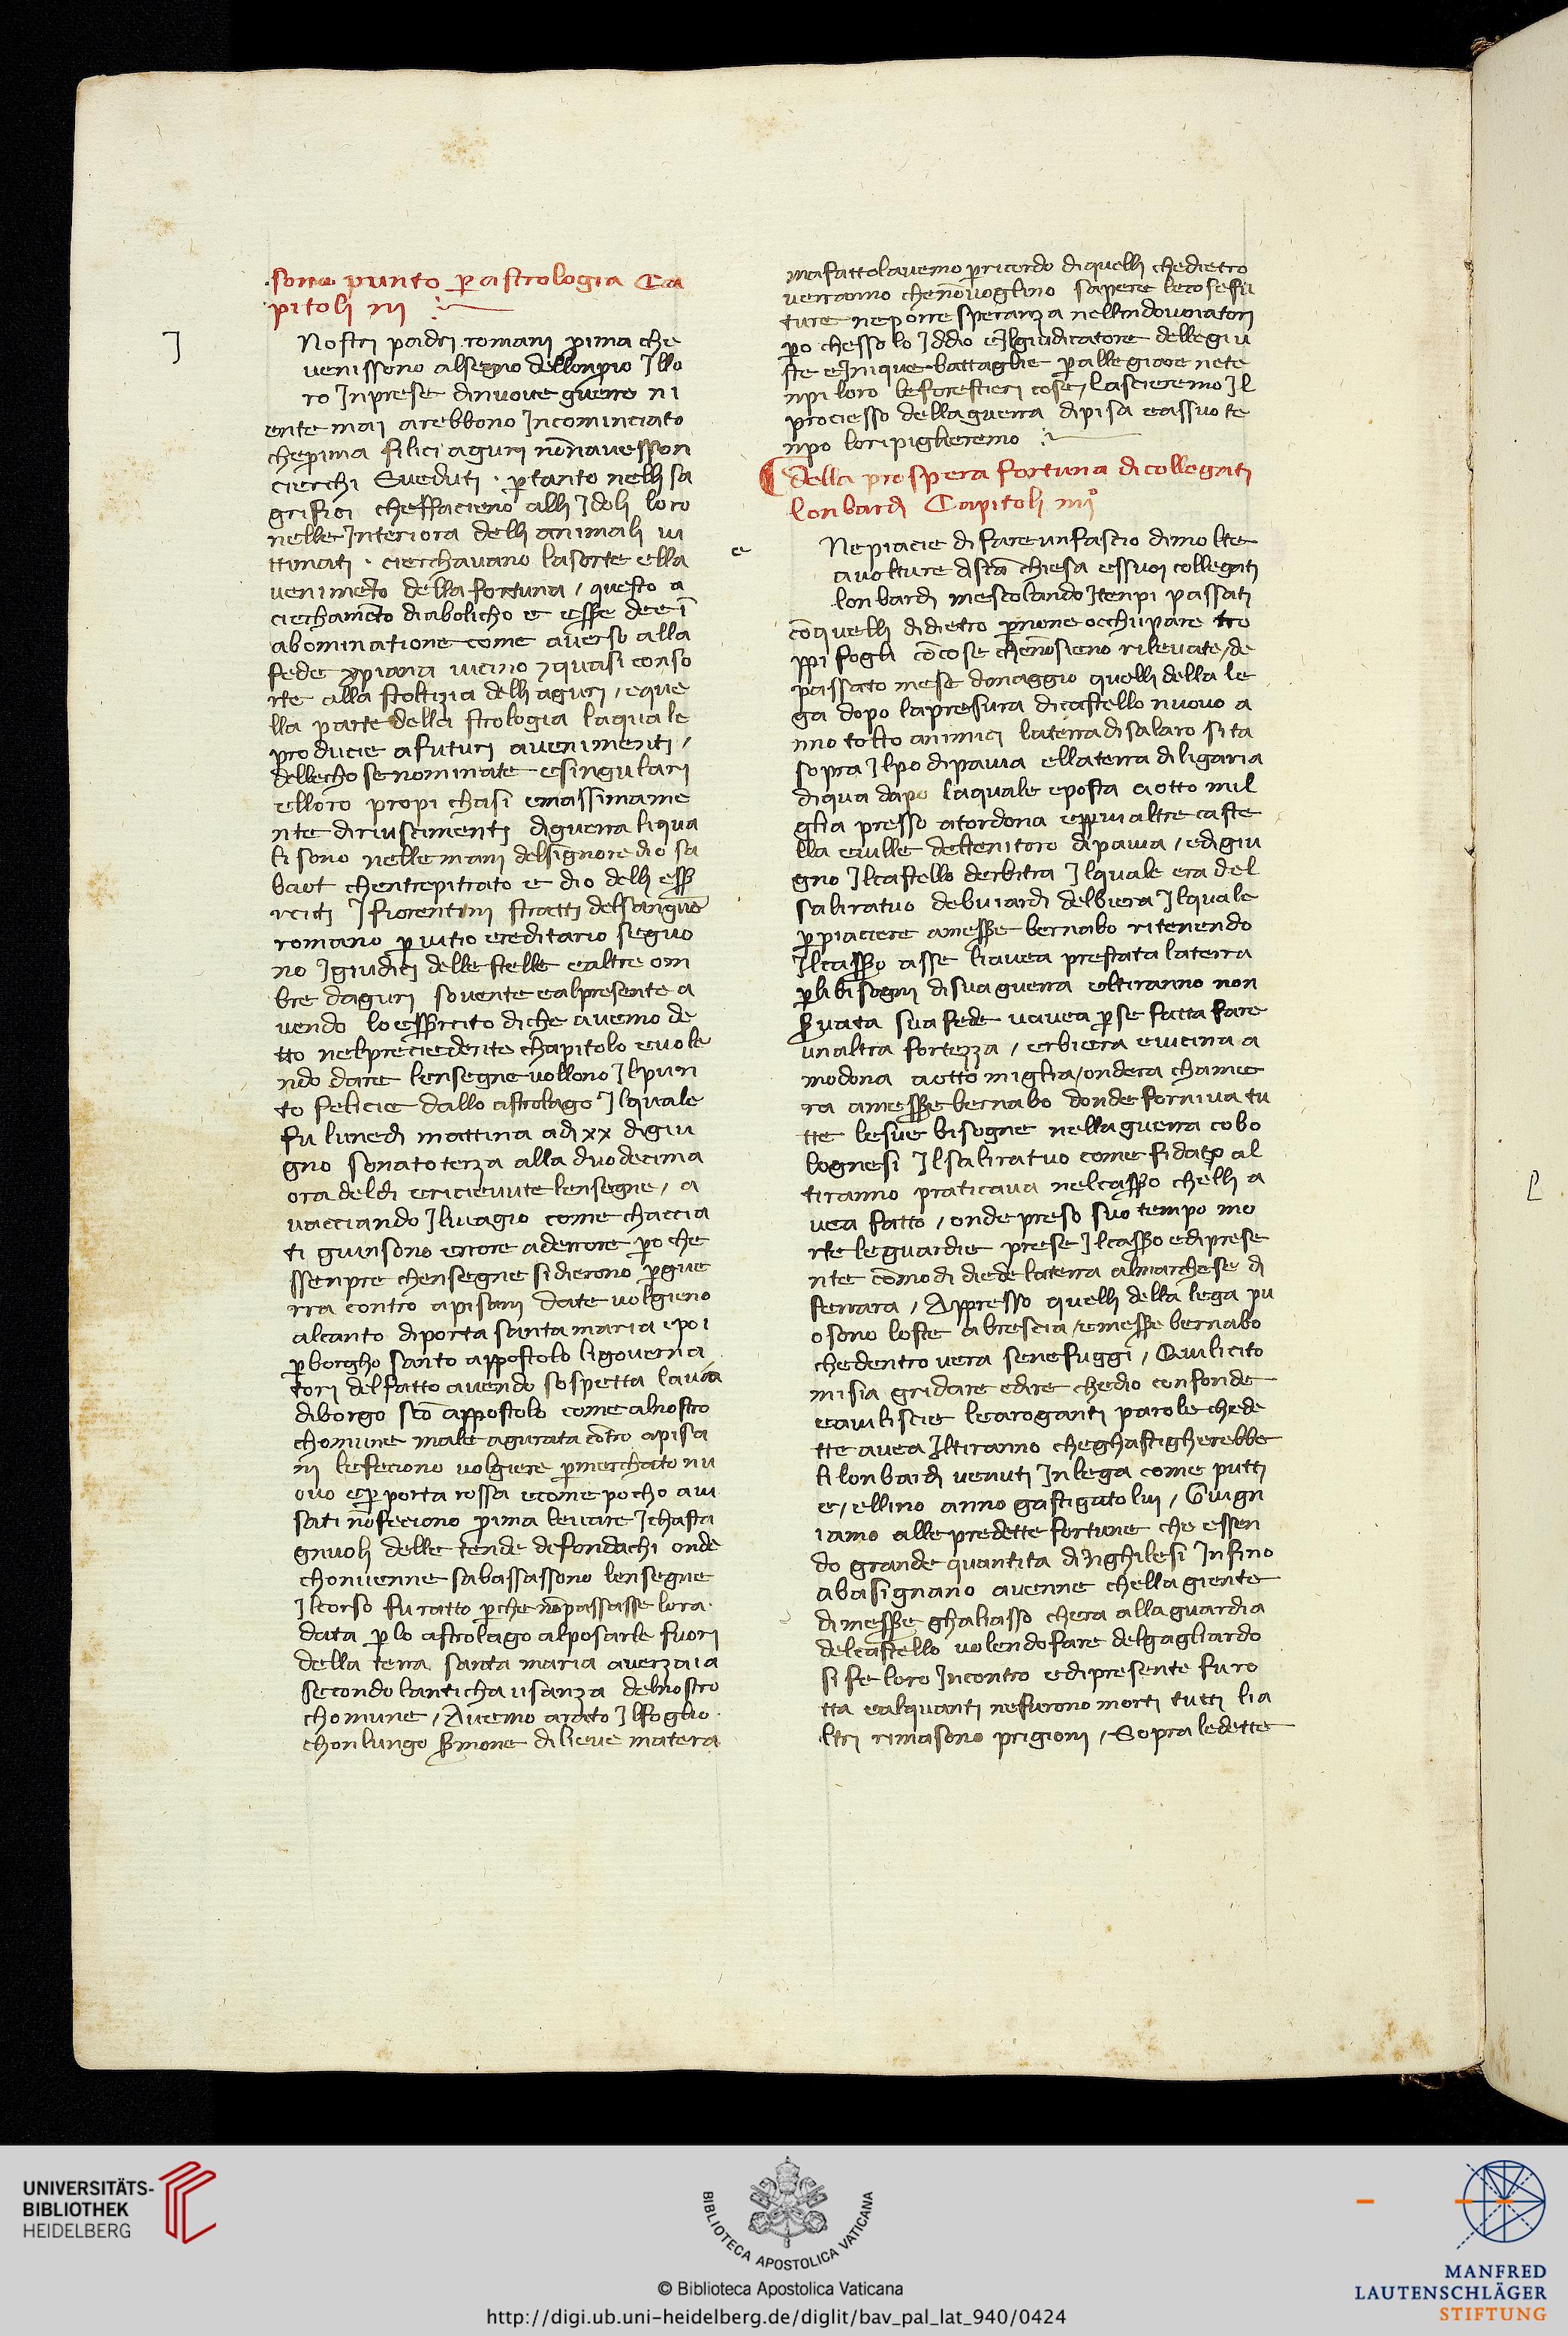 sono punto p astrologia Ca
pitoli iii
J
Nostri padri romani prima che
venissono alsegno dellonpio Jllo
ro Jnprese dinuove guerre ni
ente mai arebbono Jncominciato
cheprima filici aguri nōnavesson
cierchi Eveduti . ptanto nelli sa
grifici cheffacieno alli Jdoli loro
nelle Jnteriora delli animali vi
ttimati . cierchavano lasorte ella
venimēto della fortuna / questo a
cierchamēto diabolicho e esse dee ī
abominatione come averso alla
fede xpiana vicino 7 quasi conso
rte alla stoltizia delli aguri / eque
lla parte della strologia laquale
producie afuturi avenimenti /
dellechose nominate esingulari
elloro propi chasi emassimame
nte diriuscimenti diguerra liqua
li sono nelle mani delsignore dio sa
baot chentrepitrato e dio delli ess
rciti Jfiorentini stratti delsangue
romano p vitio ereditario seguo
no Jgiudici delle stelle ealtre om
bre daguri sovente ealpresente a
vendo lo essrcito diche avemo de
tto nelpreciedente chapitolo evole
ndo dare lensegne vollono Jlpun
to felicie dallo astrolago Jlquale
fu lunedi mattina adi xx digiu
gno sonato terza alla duodecima
ora deldi ericievute lensegne / a
vacciando Jlviagio come chaccia
ti guinsono errore aderrore po che
ssenpre chensegne si dierono p gue
rra contro apisani date volgieno
alcanto diporta santa maria epoi
p borgho santo appostolo ligoverna
tori delfatto avendo sospetta lavia
diborgo sco appostolo come alnostro
chomune male agurata cōtro apisa
ni lefeciono volgiere pmerchato nu
ovo ep porta rossa ecome pocho avi
sati nōfeciono prima levare Jchasta
gnuoli delle tende difondachi onde
chonvenne sabassassono lensegne
Jlcorso fu ratto pche nōpassasse lora
data p lo astrolago alposarle fuori
della terra santa maria averzaia
secondo lanticha usanza delnostro
chomune / Avemo arcto Jlfoglio
chonlungo smone dilieve matera
mafattolavemo pricordo diquelli chedietro
verranno chenōvoglino sapere lecose fu
ture neporre speranza nellindovinatori
po chessolo Jddio eJlgiudicatore dellegiu
ste eJnique battaglie p allegiare nete
npi loro leforestieri cose / lascieremo Jl
prociesso dellaguerra dipisa eassuo te
npo loripiglieremo
della prospera fortuna dicollegati
lonbardi Capitoli iiiio
e
Nepiacie difare unfascio dimolte
avolture discā chiesa essuoi collegati
lonbardi mescolando Jtenpi passati
cōquelli didietro pnone occhupare tro
ppi fogli cōcose chenōsieno rilevate / de
passato mese dimaggio quelli della le
ga dopo lapresura dicastello nuovo a
nno tolto animici laterra disalaro sita
sopra Jlpo dipavia ellaterra diligaria
diqua dapo laquale eposta aotto mil
glia presso atordona eppiu altre caste
lla eville deltenitoro dipavia / edigiu
gno Jlcastello derbitra Jlquale era del
saliratuo debuiardi delbiera Jlquale
p piaciere amesse bernabo ritenendo
Jlcasso asse liavea prestata laterra
plibisogni disuaguerra eltiranno non
svata suafede vavea pse fatta fare
unaltra fortezza / erbiera evicina a
modona aotto miglia / ondera chame
ra amessebernabo donde forniva tu
tte lesue bisogne nellaguerra cobo
lognesi Jlsaliratuo come fidato al
tiranno praticava nelcasso chelli a
vea fatto / onde preso suo tempo mo
rte leguardie prese Jlcasso edprese
nte cōmodi diede laterra almarchese di
ferrara / Appresso quelli della lega pu
osono loste abrescia / emesse bernabo
chedentro vera senefuggi / Quilicito
misia gridare edire chedio confonde
eavviliscie learoganti parole chede
tte avea Jltiranno cheghastigherebbe
li lonbardi venuti Jnlega come putti
e / ellino anno gastigato lui / Giugn
iamo alle predette fortune che essen
do grande quantita dinghilesi Jnfino
abasignano avenne chella giente
dimesse ghaliasso chera alla guardia
delcastello volendofare delgagliardo
si fe loro Jncontro edipresente furo
tta ealquanti nefurono morti tutti lia
ltri rimasono prigioni / Sopra ledette
UNIVERSITÄTS-
BIBLIOTHEK
HEIDELBERG
BIBLIOTECA APOSTOLICA VATICANA
© Biblioteca Apostolica Vaticana
http://digi.ub.uni-heidelberg.de/diglit/bav_pal_lat_940/0424
MANFRED
LAUTENSCHLÄGER
STIFTUNG